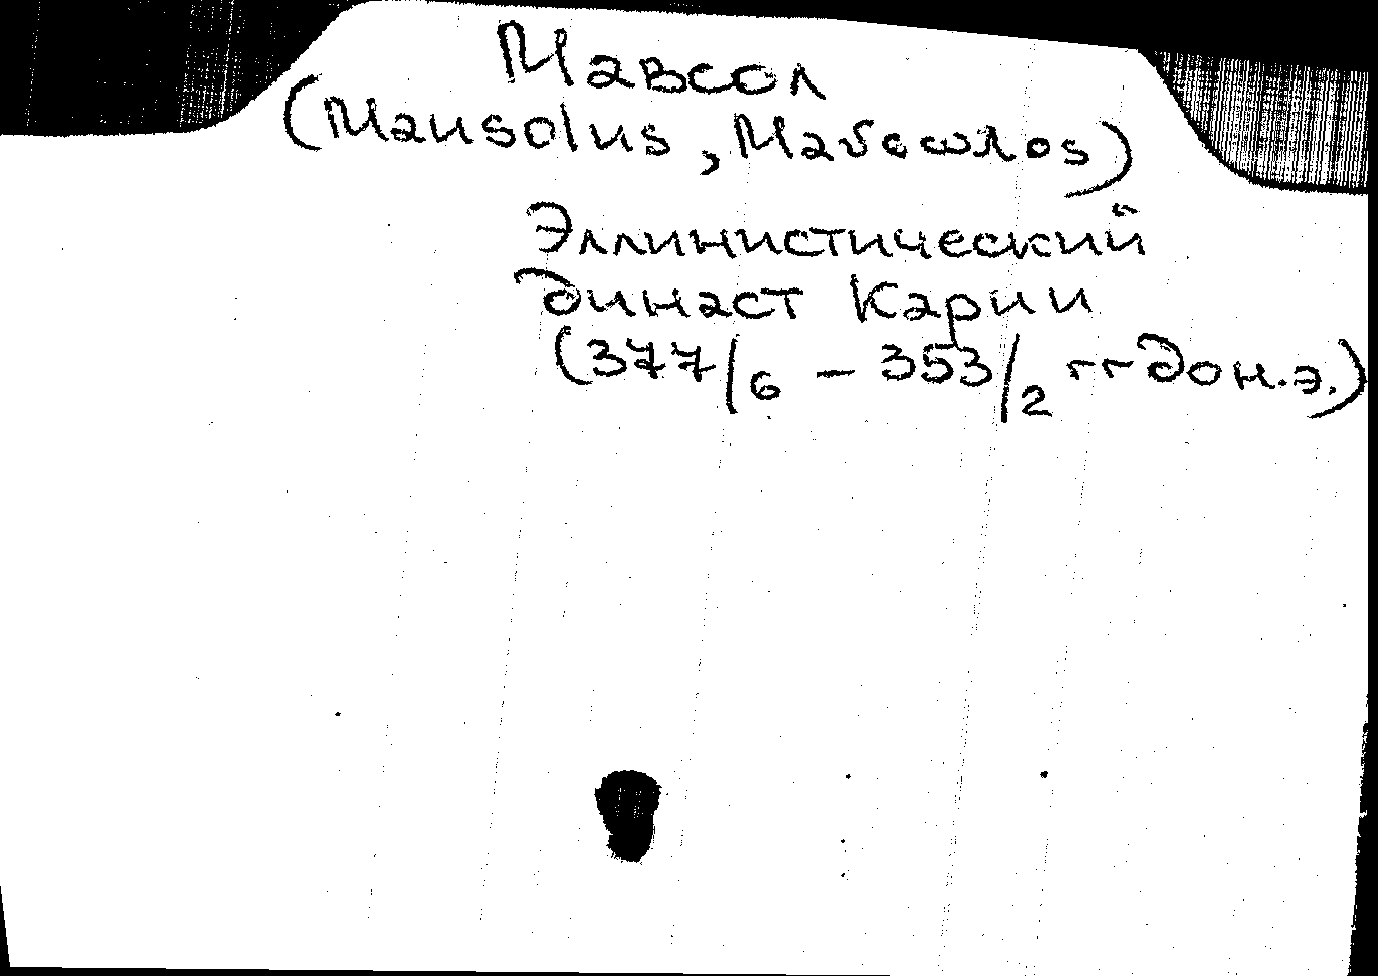 Мавсол
(Mausolus, Mavsωλos)
Эллинистический
династ Карии
(377/6 – 353/2 гг до н.э.)